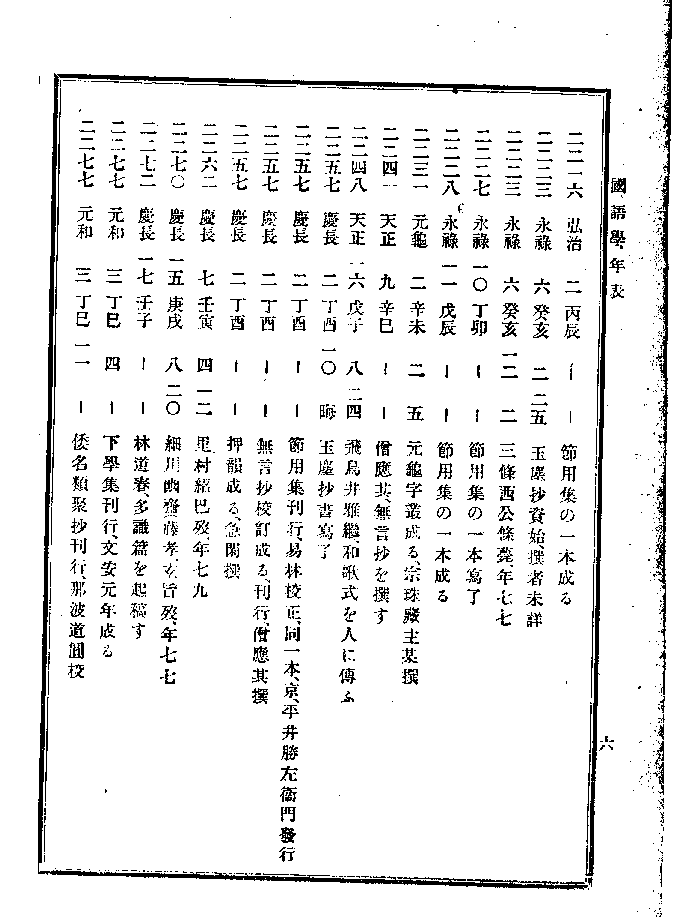 國語學年表
六
二二一六 弘治 二 丙辰 ー ー 節用集の一本成る
二二二三 永祿 六 癸亥 二 二五 玉塵抄資始撰者未詳
二二二三 永祿 六 癸亥 一二 二 三條西公條薨年七七
二二二七 永祿 一〇 丁卯 ー ー 節用集の一本寫了
二二二八 永祿 一一 戊辰 ー ー 節用集の一本成る
二二三一 元龜 二 辛未 二 五 元龜字叢成る、宗珠藏主某撰
二二四一 天正 九 辛巳 ー ー 僧應其、無言抄を撰す
二二四八 天正 一六 戊子 八 二四 飛鳥井雅繼、和歌式を人に傳ふ
二二五七 慶長 二 丁酉 一〇 晦 玉塵抄書寫了
二二五七 慶長 二 丁酉 ー ー 節用集刊行、易林校正、同一本、京、平井勝左衞門發行
二二五七 慶長 二 丁酉 ー ー 無言抄校訂成る、刊行、僧應其撰
二二五七 慶長 二 丁酉 ー ー 押韻成る、急閑撰
二二六二 慶長 七 壬寅 四 一二 里村紹巴歿、年七九
二二七〇 慶長 一五 庚戌 八 二〇 細川幽齋(藤孝、玄旨)歿、年七七
二二七二 慶長 一七 壬子 ー ー 林道春、多識篇を起稿す
二二七七 元和 三 丁巳 四 ー 下學集刊行、文安元年成る
二二七七 元和 三 丁巳 一一 ー 倭名類聚抄刊行、那波道圓校